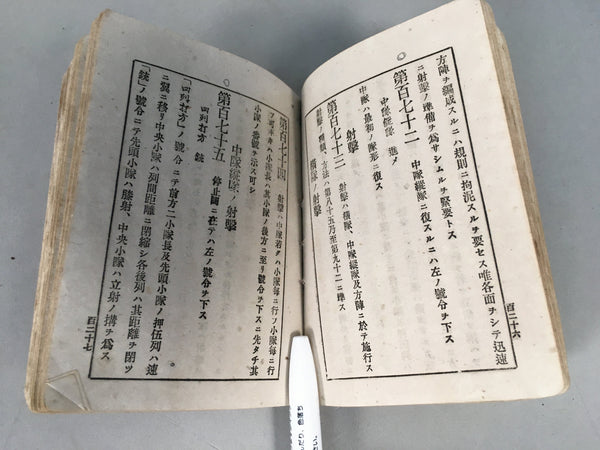 方陣ヲ編成スルニハ規則ニ拘泥スルヲ要セス唯各面ヲシテ迅速
ニ射擊ノ準備ヲ爲サシムルヲ緊要トス
第百七十二 中隊縱隊ニ復スルニハ左ノ號令ヲ下ス
中隊縱隊 進メ
中隊ハ最初ノ隊形ニ復ス
射擊
第百七十三 射擊ハ橫隊、中隊縱隊及方陣ニ於テ施行ス
射擊ノ種類、方法ハ第八十五乃至第九十二ニ準ス
橫隊ノ射擊
百二十六
第百七十四 射擊ハ中隊若クハ小隊每ニ行フ小隊每ニ行
フ可キトキハ小隊長ハ其小隊ノ後方ニ至リ號令ヲ下スニ先タチ其
小隊ノ番號ヲ示ス可シ
中隊縱隊ノ射擊
第百七十五 停止間ニ在テハ左ノ號令ヲ下ス
四列打方 銃
「四列打方」ノ號令ニテ前方二小隊長及先頭小隊ノ押伍列ハ速
ニ翼ニ移リ中央小隊ハ列間距離ニ閉縮シ各後列ハ其距離ヲ閉ツ
「銃」ノ號令ニテ先頭小隊ハ膝射、中央小隊ハ立射ノ搆ヲ爲ス
百二十七